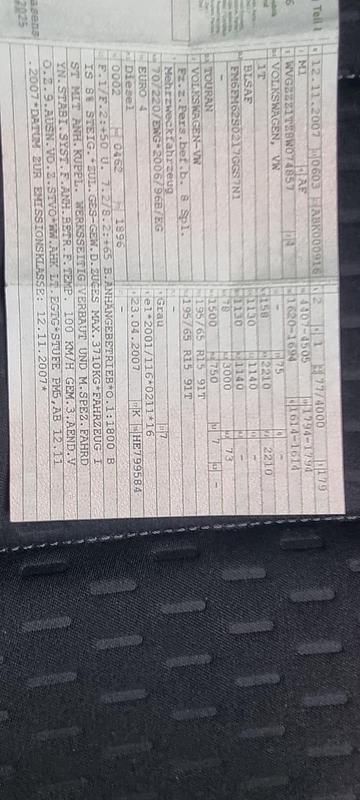 Teil I
12.11.2007 0603 ABK000916
M1 AF
WVGZZZ1TZ8W074857
VOLKSWAGEN, VW
1T
BLSAF
FM6FM62S0217GGS7N1
-
TOURAN
VOLKSWAGEN-VW
Fz.z.Pers.bef.b. 8 Spl.
Mehrzweckfahrzeug
70/220/EWG*2006/96B/EG
EURO 4
Diesel
0002 0462 1896
2 1 77/4000 179
4407-4505 1794-1794
1620-1694 1614-1614
- 75 -
158 2210 2210
1130 1140 -
1130 1140 -
78 3000 73
1500 750 7 -
195/65 R15 91T
195/65 R15 91T
-
Grau 7
e1*2001/116*0211*16
23.04.2007 K HE799584
-
F.1/F.2:+50 U. 7.2/8.2:+65 B.ANHÄNGEBETRIEB*O.1:1800 B
IS 8% STEIG.*ZUL.GES-GEW.D.ZUGES MAX.3710KG*FAHRZEUG I
ST MIT ANH.KUPPL. WERKSSEITIG VERBAUT UND M.SPEZ.FAHRD
YN.STABI.SYST.F.ANH.BETR.F.TEMP. 100 KM/H GEM.3.AEND.V
O.Z.9.AUSN.VO.Z.STVO*WW.AHK LT.EGTG*STUFE PM5,AB 12.11
.2007*DATUM ZUR EMISSIONSKLASSE: 12.11.2007*